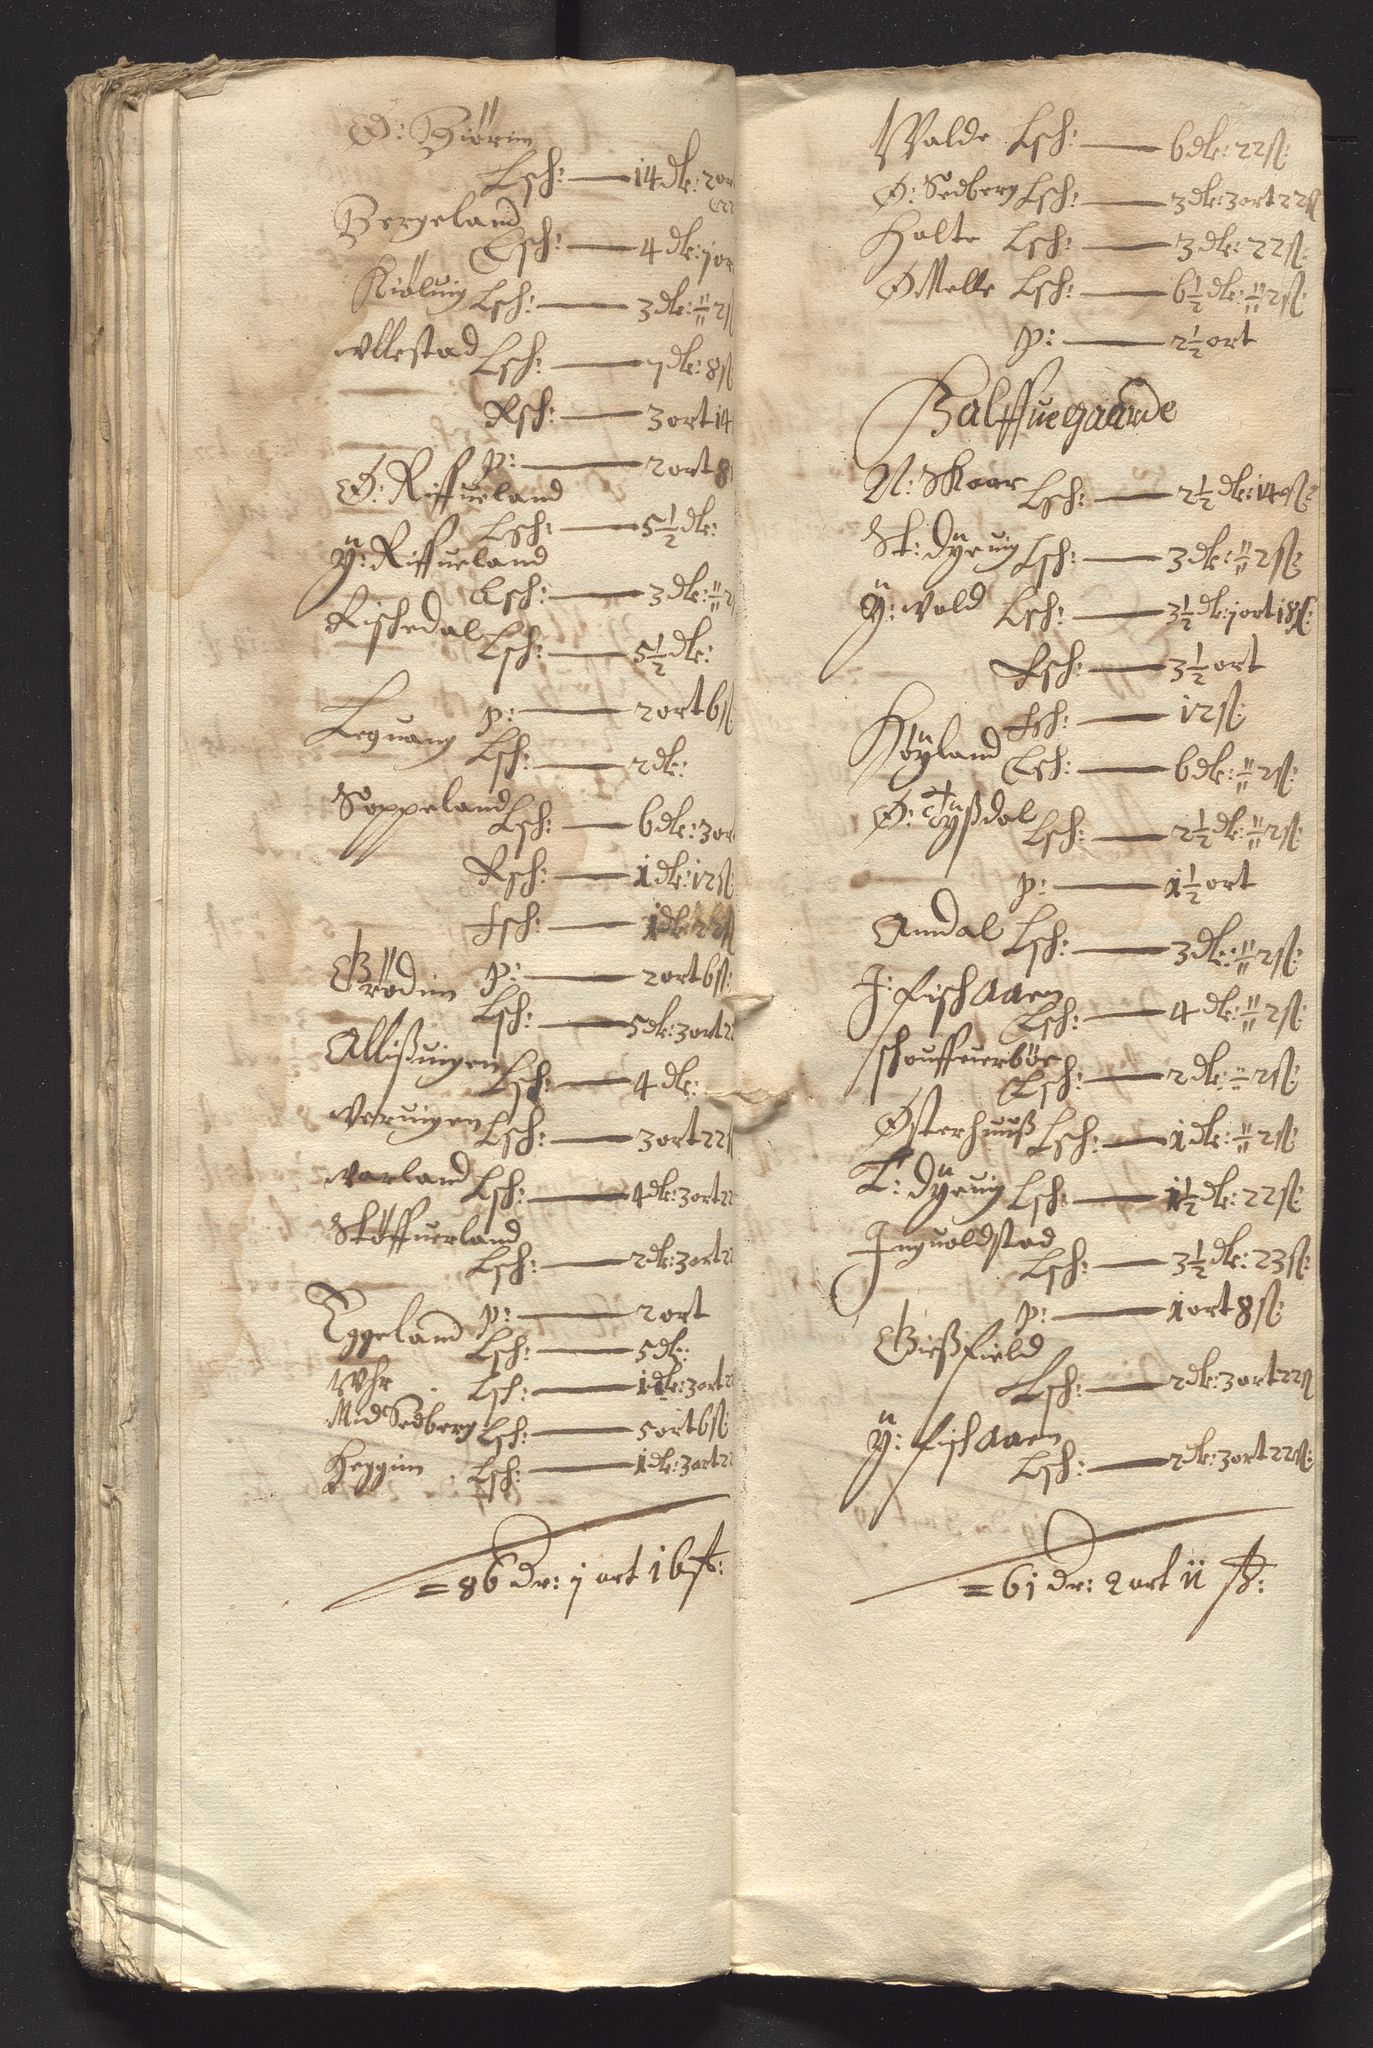 Ø: Biörin
Lsch: — 14 dlr: 2 or
Bergeland
Lsch: — 4 dlr: j or
Kiöluig Lsch: — 3 dlr: "/" 2 ß
Vllestad Lsch: — 7 dlr: 8 ß
Rsch: — 3 ort 14
p: — 2 ort 8
Ø: Riffueland
Lsch: — 5½ dlr:
ÿ: Riffueland
Lsch: — 3 dlr: "/" 2
Rischedal Lsch: — 5½ dlr:
p: — 2 ort 6 ß
Leguang Lsch: — 2 dlr:
Soppeland Lsch: — 6 dlr: 3 or
Rsch: — 1 dlr: 12 ß
fsch: — 1 dlr: 22 ß
p: — 2 ort 6 ß:
Brödim Lsch: — 5 dlr: 3 ort 22
Allißuigen Lsch: — 4 dlr:
Veruigen Lsch: — 3 ort 22 ß
Varland Lsch: — 4 dlr: 3 ort 22
Stöffuerland
Lsch: — 2 dlr: 3 ort 22
p: — 2 ort
Eggeland Lsch: — 5 dlr:
Vhr Lsch: — 1 dlr: 3 ort 22
Mid Sedberg Lsch: — 5 ort 6 ß:
Heggim Lsch: — 1 dlr: 3 ort 22
= 86 dr: j ort 16 ß:
Valde Lsch: — 6 dlr: 22 ß:
Ø: Sedberg Lsch: — 3 dlr: 3 ort 22 ß
Holte Lsch: — 3 dlr: 22 ß:
Ø Melle Lsch: — 6½ dlr: "/" 2 ß:
p: — 2½ ort
Halffuegaarde
N: Skaar Lsch: — 2½ dlr: 14 ß:
St: Dÿruig Lsch: — 3 dlr: "/" 2 ß:
ÿ: Vold Lsch: — 3½ dlr: j ort 18 ß:
Rsch: — 3½ ort
fsch: — 12 ß:
Höÿland Lsch: — 6 dlr: "/" 2 ß:
Ø: Tÿßdal Lsch: — 2½ dlr: "/" 2 ß:
p: — 1½ ort
Amdal Lsch: — 3 dlr: "/" 2 ß:
J: fischaaen
Lsch: — 4 dlr: "/" 2 ß:
schouffuerböe
Lsch: — 2 dlr: "/" 2 ß:
Østerhuuß Lsch: — 1 dlr: "/" 2 ß:
L: Dÿruig Lsch: — 1½ dlr: 22 ß:
Inguoldstad
Lsch: — 3½ dlr: 23 ß:
p: — 1 ort 8 ß:
Gießfield
Lsch: — 2 dlr: 3 ort 22 ß
ÿ: fischaaen
Lsch: — 2 dlr: 3 ort 22 ß:
= 61 dr: 2 ort 11 ß: